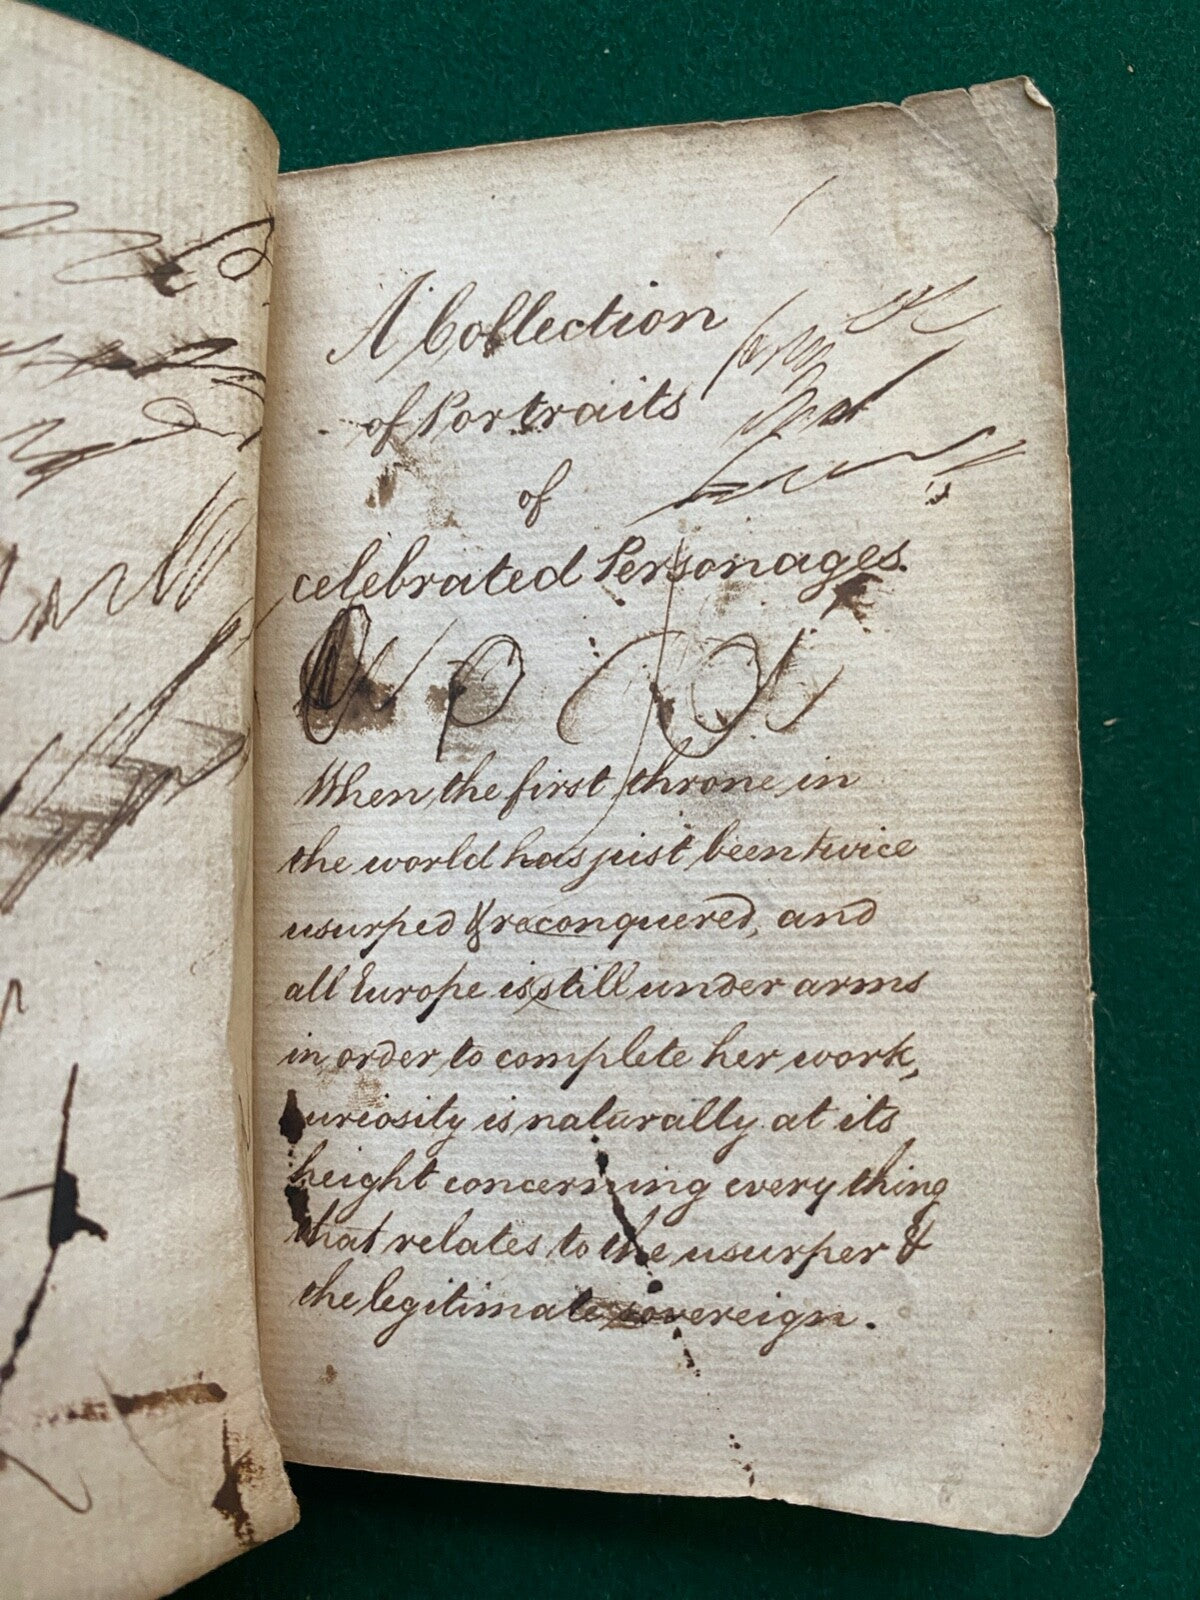 A Collection
of Portraits
of
celebrated Personages.
When the first throne in
the world has just been twice
usurped & reconquered, and
all Europe is still under arms
in order to complete her work,
curiosity is naturally at its
height concerning every thing
that relates to the usurper &
the legitimate sovereign.